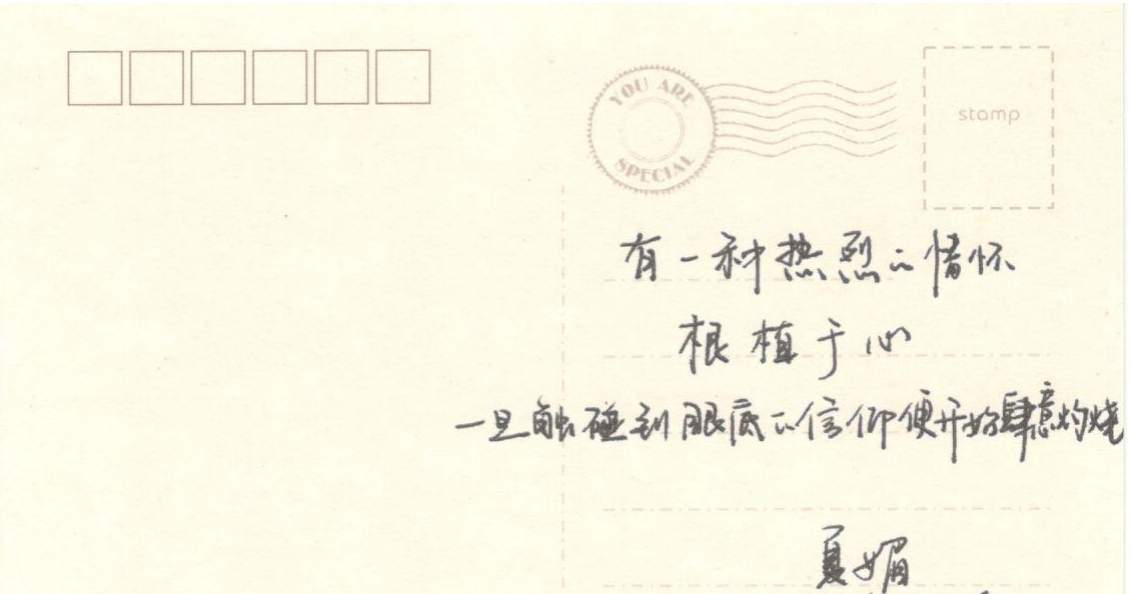 YOU ARE
SPECIAL
stamp
有一种热烈的情怀
根植于心
一旦触碰到眼底的信仰便开始肆意灼烧
夏媚